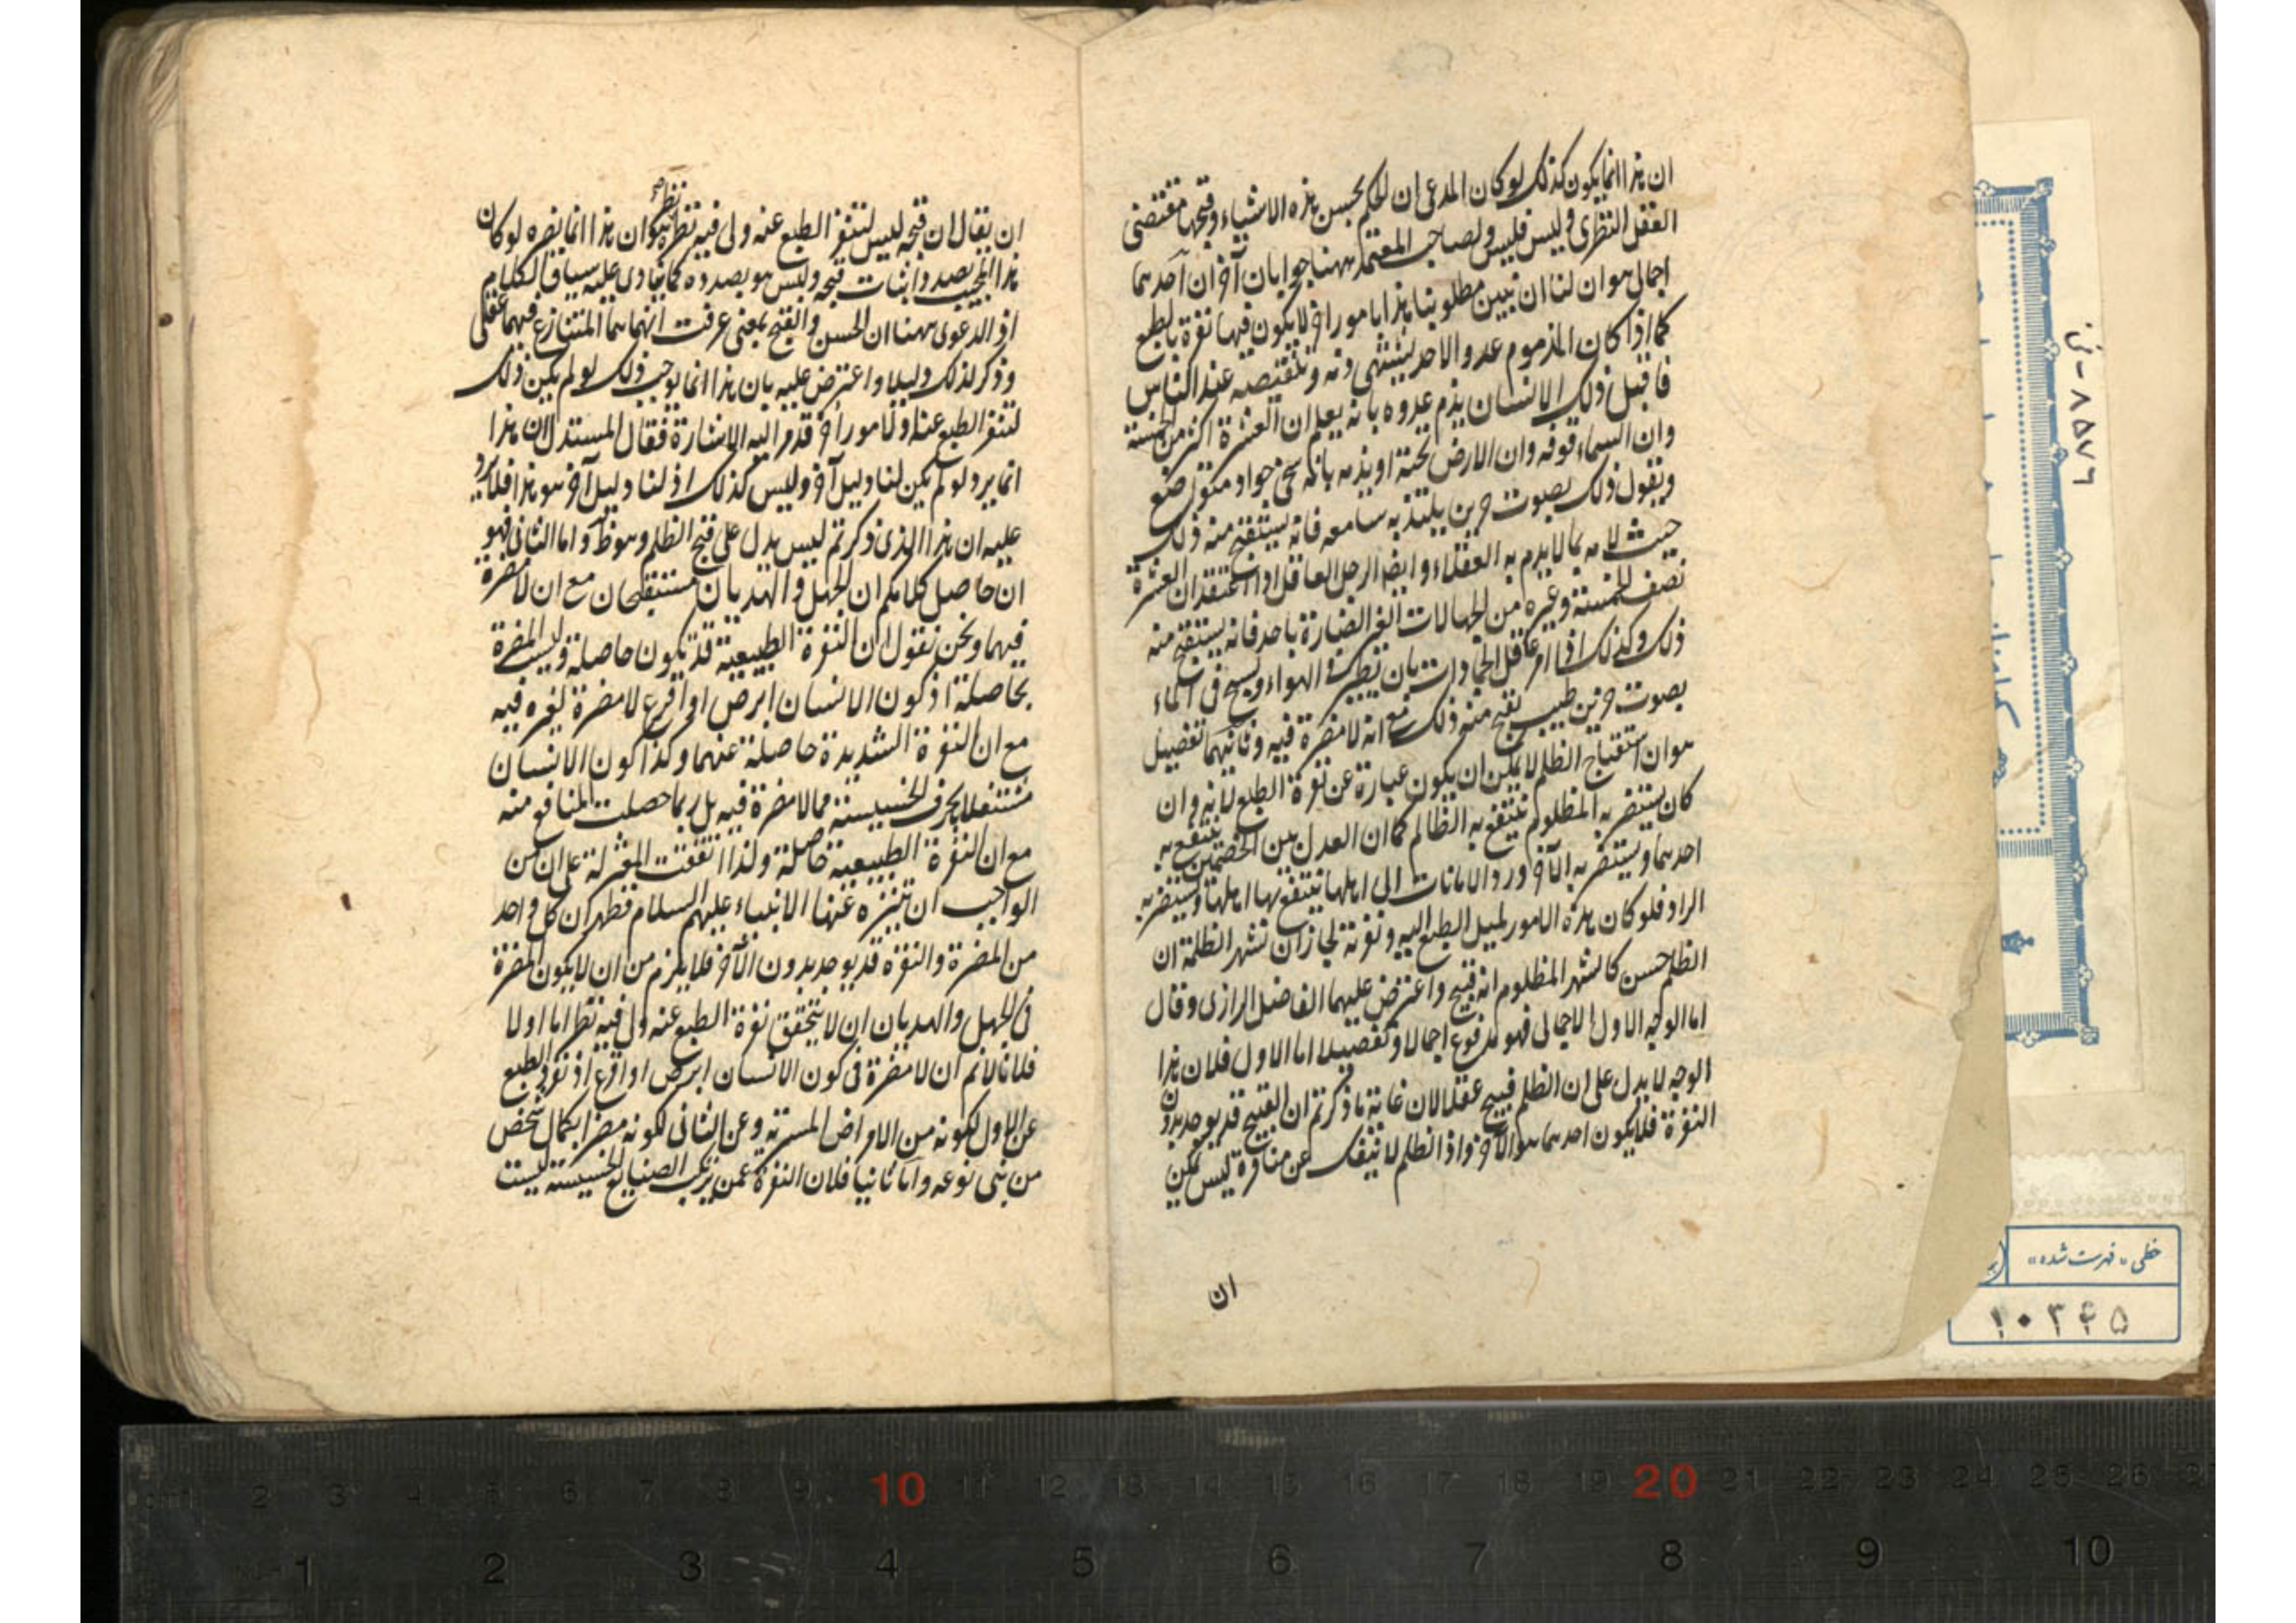 ان هذا انما يكون كذلك لو كان المدعى ان الحكم بحسن هذه الاشياء وقبحها مقتضى
العقل النظرى وليس فليس ولصاحب المعتمد ههنا جوابان آخران احدهما
اجمالى هو ان لنا ان نبين مطلوبنا هذا بامور اخر لا يكون فيها نفرة بالطبع
كما اذا كان المذموم عدوا لاحد يشتهى ذمه وتنقيصه عند الناس
فاقبل ذلك الانسان يذم عدوه بانه يعلم ان العشرة اكثر من الخمسة
وان السماء فوقه وان الارض تحته او يذمه بانه سخى جواد
ويقول ذلك بصوت حزين يلتذ به سامعه فانه يستقبح منه ذلك
حيث لامه بما لا يذم به العقلاء وايضا الرجل العاقل اذا اعتقد ان العشرة
نصف الخمسة وغيره من الجهالات الغير الضارة باحد فانه يستقبح منه
ذلك وكذلك اذا امر عاقل الجمادات بان تطير فى الهواء وتسبح فى الماء
بصوت حزين طيب يقبح منه ذلك مع انه لا مضرة فيه وثانيهما تفصيل
هو ان استقباح الظلم لا يمكن ان يكون عبارة عن نفرة الطبع لانه وان
كان يستضر به المظلوم ينتفع به الظالم كما ان العدل بين الخصمين ينتفع به
احدهما ويستضر به الآخر ورد الامانات الى اهلها ينتفع بها اهلها ويستضر به
الراد فلو كان هذه الامور لميل الطبع اليه ونفرته لجاز ان تشهر الظلمة ان
الظلم حسن كما تشهر المظلوم انه قبيح واعترض عليهما الفاضل الرازى وقال
اما الوجه الاول الاجمالى فهو مدفوع اجمالا وتفصيلا اما الاول فلان هذا
الوجه لا يدل على ان الظلم قبيح عقلا لان غاية ما ذكرتم ان القبيح قد يوجد بدون
النفرة فلا يكون احدهما هو الآخر واذ الظلم لا ينفك عن منافرة ليس يمكن
ان
ان يقال ان قبحه ليس لتنفر الطبع عنه ولى فيه نظر ان هذا انما يضره لو كان
نظر صح
هذا المجيب بصدد اثبات قبحه وليس هو بصدده كما ينادى عليه سياق الكلام
اذ الدعوى ههنا ان الحسن والقبح بمعنى عرفت انهما هما المتنازع فيهما عقلى
وذكر لذلك دليلا واعترض عليه بان هذا انما يوجب ذلك لو لم يكن ذلك
لتنفر الطبع عنه او لامور اخر قد مر اليه الاشارة فقال المستدل ان هذا
انما يرد لو لم يكن لنا دليل آخر وليس كذلك اذ لنا دليل آخر هو هذا فلا يرد
عليه ان هذا الذى ذكرتم ليس يدل على قبح الظلم وهو ظ واما الثانى فهو
ان حاصل كلامكم ان الجهل والهذيان مستقبحان مع ان لا مضرة
فيهما ونحن نقول ان النفرة الطبيعية قد تكون حاصلة وليست المضرة
بحاصلة اذ كون الانسان ابرص او اقرع لا مضرة لغيره فيه
مع ان النفرة الشديدة حاصلة عنهما وكذا كون الانسان
مشتغلا بالحرف الخسيسة مما لا مضرة فيه بل ربما حصلت المنافع منه
مع ان النفرة الطبيعية حاصلة ولذا اتفقت المعتزلة على ان من
الواجب ان يتنزه عنها الانبياء عليهم السلام فظهر ان كل واحد
من المضرة والنفرة قد يوجد بدون الآخر فلا يلزم من ان لا يكون المضرة
فى الجهل والهذيان ان لا يتحقق نفرة الطبع عنه ولى فيه نظر اما اولا
فلانا لا نم ان لا مضرة فى كون الانسان ابرص او اقرع اذ نفرة الطبع
عن الاول لكونه من الامراض المسرية وعن الثانى لكونه مضرا بكمال شخص
من بنى نوعه واما ثانيا فلان النفرة عمن يرتكب الصنايع الخسيسة ليست
٨٥٧٦ - ن
خطى «فهرست شده»
١٠٣٤٥